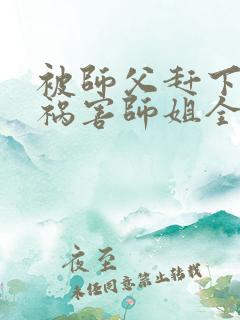 被師父赶下
祸害師姐全
夜至
未经同意禁止转载